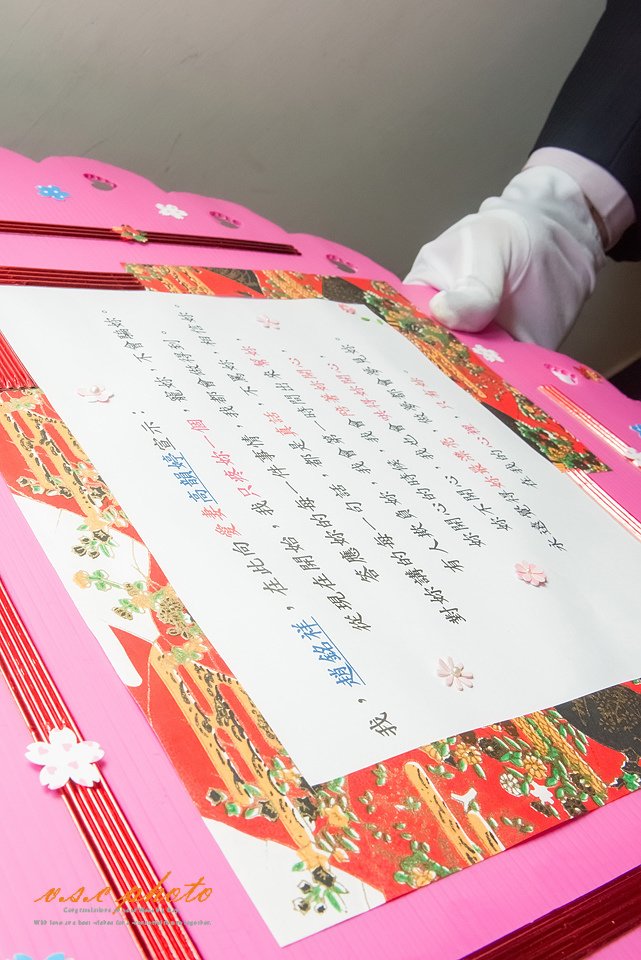 我，趙銘祥，在此向愛妻高韻婷宣示：
從現在開始，我只疼妳一個，寵妳，不會騙妳。
答應妳的每一件事情，我都會做得到。
對妳講的每一句話，都是真話，不罵妳，相信妳。
有人欺負妳，我會第一時間出來幫妳。
妳開心的時候，我會陪著妳開心，
妳不開心，我也會哄得妳開心，
永遠覺得妳最漂亮，做夢都會夢見妳。
在我的心裡，只有妳。
o.s.c photo